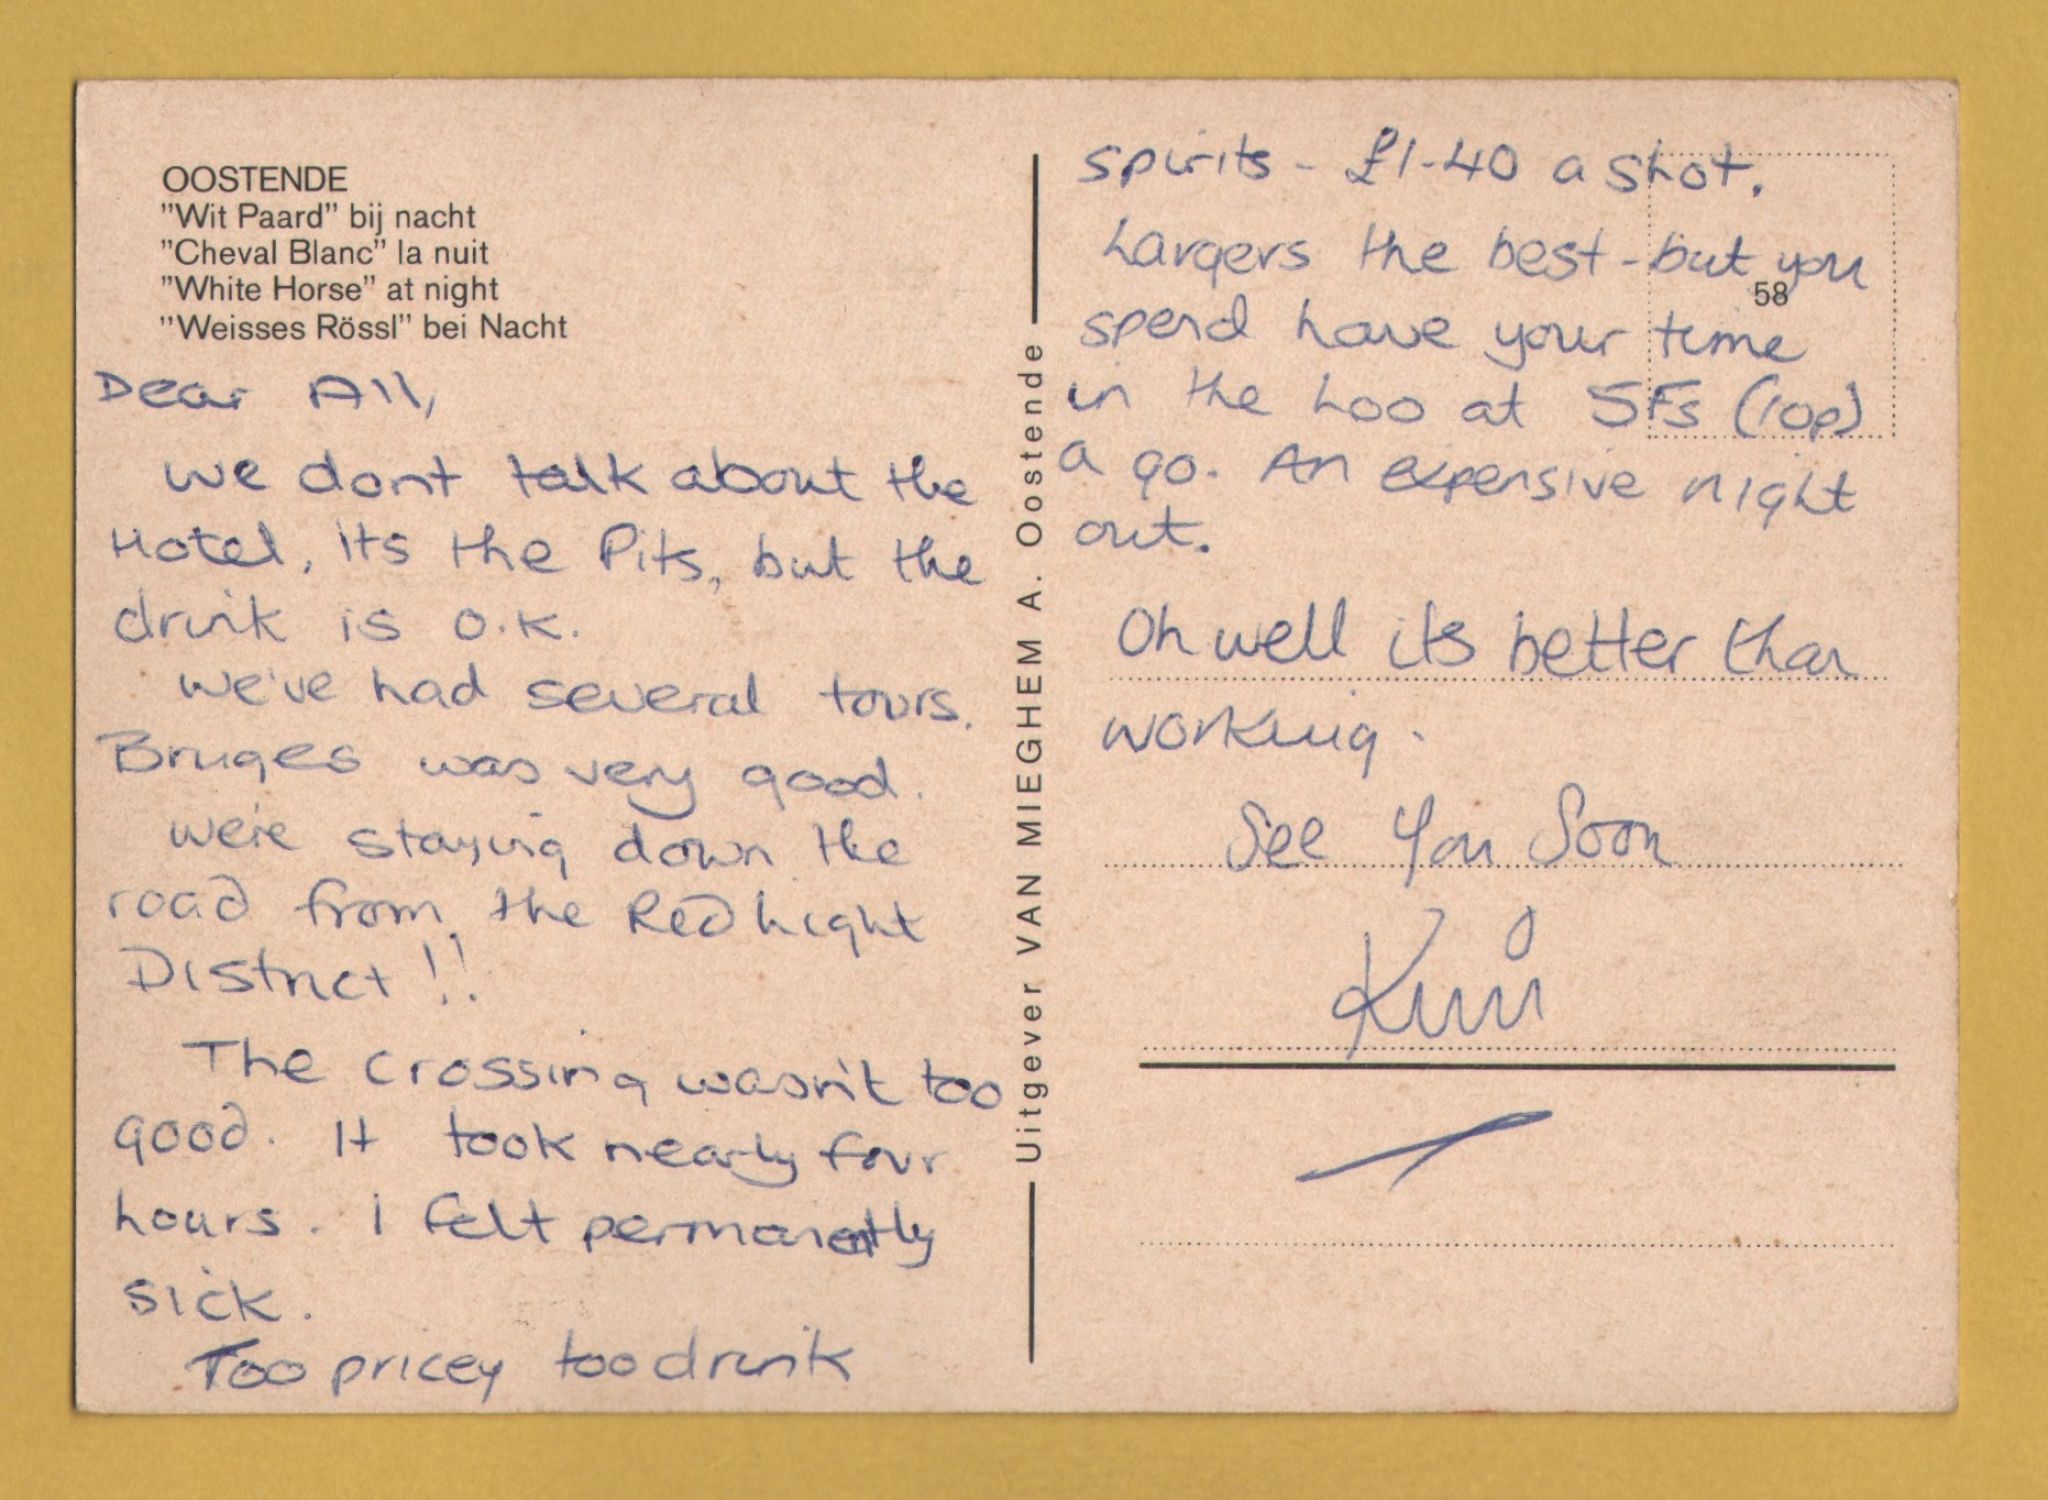 OOSTENDE
"Wit Paard" bij nacht
"Cheval Blanc" la nuit
"White Horse" at night
"Weisses Rössl" bei Nacht
Dear All,
we dont talk about the
Hotel, its the Pits, but the
drink is O.K.
we've had several tours.
Bruges was very good.
we're staying down the
road from the Red Light
District!!
The crossing wasn't too
good. It took nearly four
hours. I felt permanently
sick.
Too pricey too drink
Uitgever VAN MIEGHEM A. Oostende
spirits - £1-40 a shot.
Largers the best - but you
58
spend have your time
in the Loo at 5Fs (10p)
a go. An expensive night
out.
Oh well its better than
working.
See You Soon
Kim